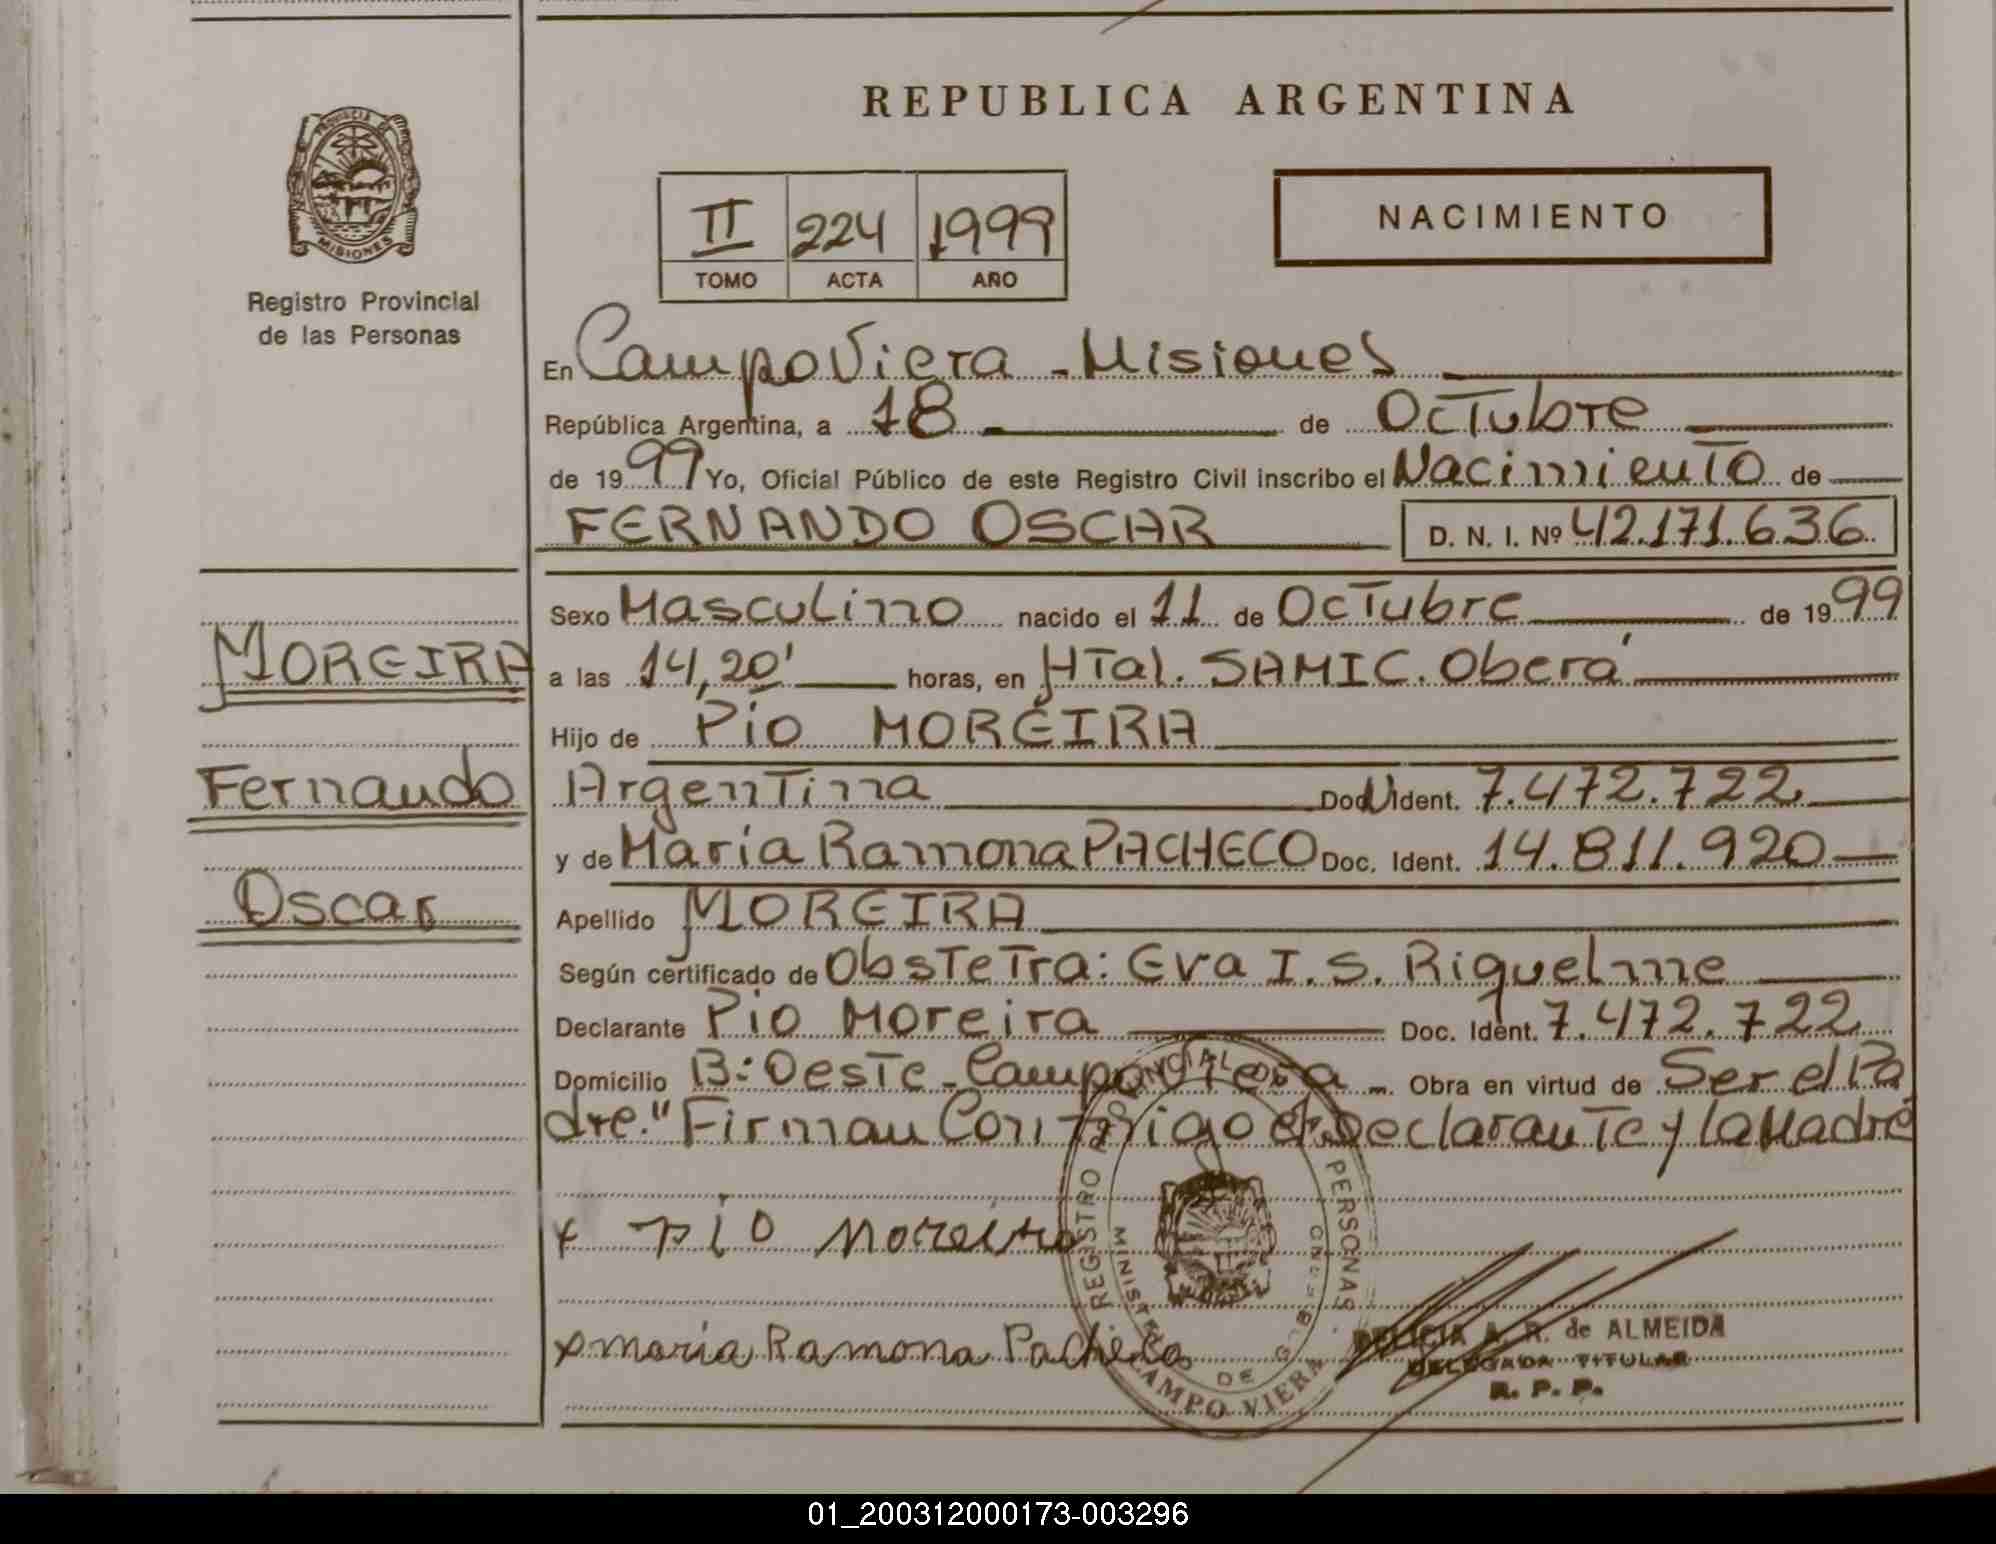 REPUBLICA ARGENTINA
PROVINCIA DE
MISIONES
Registro Provincial
de las Personas
II 224 1999
TOMO ACTA AÑO
NACIMIENTO
En Campo Viera - Misiones
República Argentina, a 18 de Octubre
de 1999 Yo, Oficial Público de este Registro Civil inscribo el Nacimiento de
FERNANDO OSCAR D. N. I. Nº 42.171.636
MOREIRA
Fernando
Oscar
Sexo Masculino nacido el 11 de Octubre de 1999
a las 14,20' horas, en HTal. SAMIC. Oberá
Hijo de Pio MOREIRA
Argentina Doc. Ident. 7.472.722
y de Maria Ramona PACHECO Doc. Ident. 14.811.920
Apellido MOREIRA
Según certificado de Obstetra: Eva I. S. Riquelme
Declarante Pio Moreira Doc. Ident. 7.472.722
Domicilio B: Oeste - Campo Viera - Obra en virtud de Ser el Pa
dre." Firman Conmigo el Declarante y la Madre
x pio Moreira
x maria Ramona Pacheco
REGISTRO PROVINCIAL DE PERSONAS
CAMPO VIERA
DELICIA A. R. de ALMEIDA
DELEGADA TITULAR
R. P. P.
01_200312000173-003296